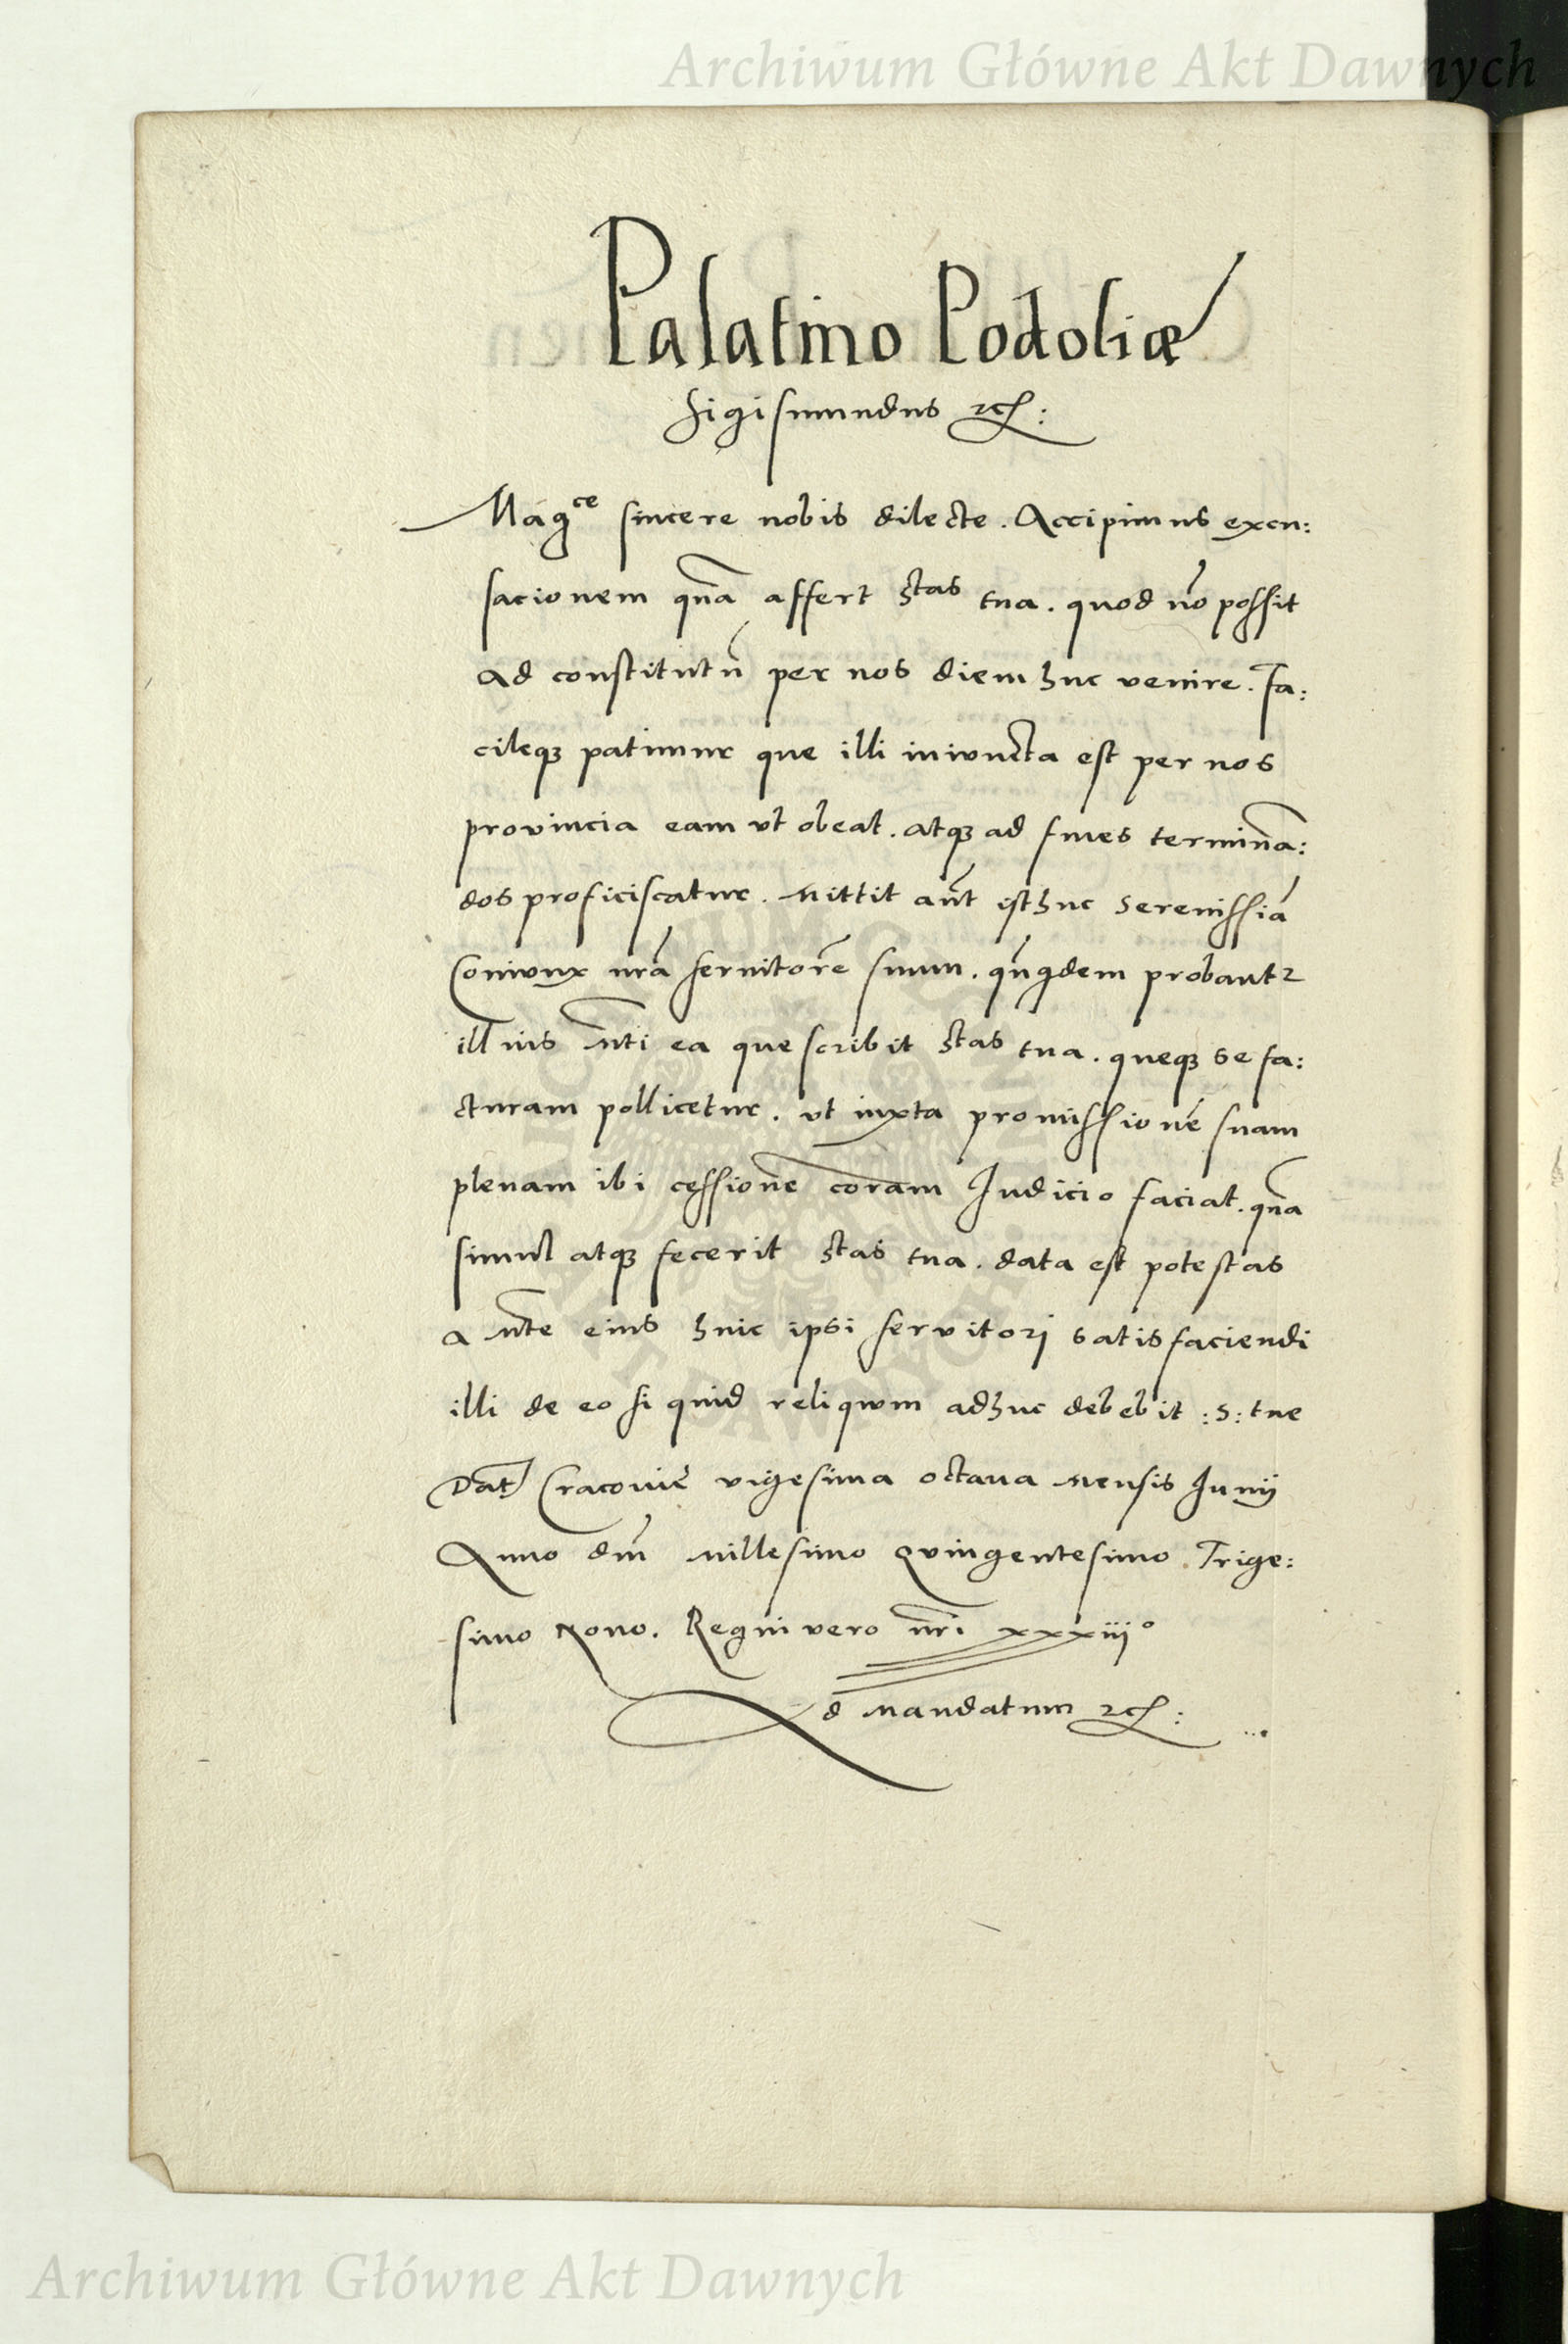 Archiwum Główne Akt Dawnych
Palatino Podoliæ
Sigismundus ꝛcꝭ:
Magce sincere nobis dilecte. Accipimus excu:
sacionem quã affert Stas tua. quod nõ possit
ad constitutũ per nos diem huc venire. Fa:
cileqꝫ patimur que illi iniuncta est per nos
provincia eam vt obeat. atqꝫ ad fines terminã:
dos proficiscatur. Mittit aũt isthuc Serenissiã
Coniunx nrã servitorẽ suum. qñqdem probantꝛ
illius mti ea que scribit Stas tua. queqꝫ se fa:
cturam pollicetur. vt iuxta promissionẽ suam
plenam ibi cessionẽ coram Iudicio faciat. quã
simul atqꝫ fecerit Stas tua. data est potestas
a mte eius huic ipsi servitori satisfaciendi
illi de eo si quid reliquum adhuc debebit :S: tue
Dat Cracouie vigesima octaua mensis Iunij
Anno dnĩ Millesimo Quingentesimo. Trige:
simo Nono. Regni vero nrĩ xxxiijº
Ad Mandatum ꝛcꝭ:
Archiwum Główne Akt Dawnych